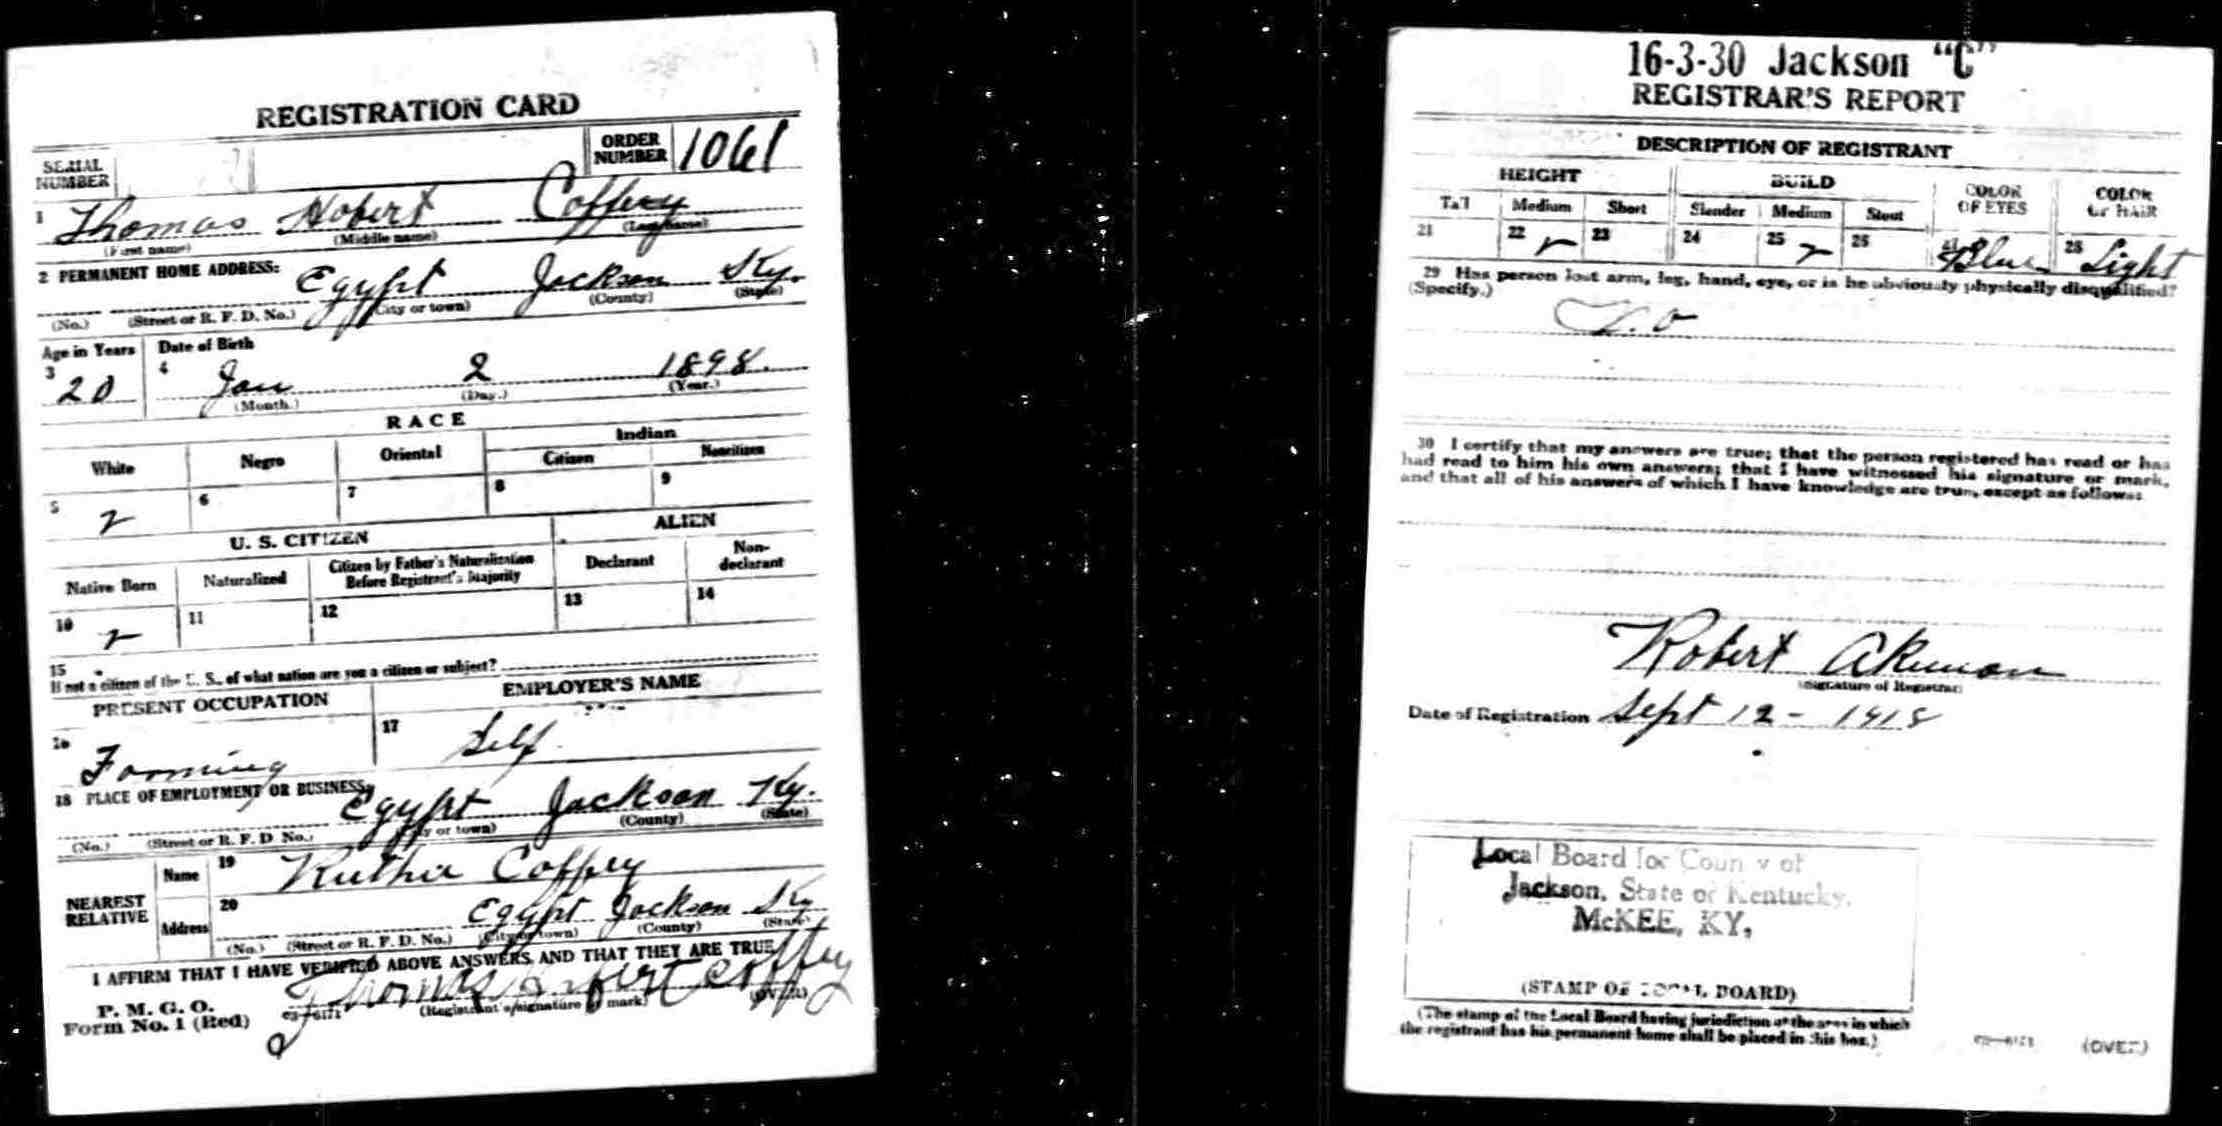 REGISTRATION CARD
SERIAL NUMBER
ORDER NUMBER 1061
1 Thomas Hobert Coffey
(First name) (Middle name) (Last name)
2 PERMANENT HOME ADDRESS: Egypt Jackson Ky.
(No.) (Street or R. F. D. No.) (City or town) (County) (State)
Age in Years Date of Birth
3 20 4 Jan 2 1898
(Month.) (Day.) (Year.)
RACE
White Negro Oriental Indian
Citizen Noncitizen
5 6 7 8 9
U. S. CITIZEN ALIEN
Native Born Naturalized Citizen by Father's Naturalization Before Registrant's Majority Declarant Non-declarant
10 11 12 13 14
15
If not a citizen of the U. S., of what nation are you a citizen or subject?
PRESENT OCCUPATION EMPLOYER'S NAME
16 Farming 17 Self
18 PLACE OF EMPLOYMENT OR BUSINESS: Egypt Jackson Ky.
(No.) (Street or R. F. D. No.) (City or town) (County) (State)
NEAREST RELATIVE
Name 19 Ruthie Coffey
Address 20 Egypt Jackson Ky
(No.) (Street or R. F. D. No.) (City or town) (County) (State)
I AFFIRM THAT I HAVE VERIFIED ABOVE ANSWERS AND THAT THEY ARE TRUE
P. M. G. O.
Form No. 1 (Red) Thomas Hobert Coffey
(Registrant's signature or mark) (OVER)
16-3-30 Jackson "C"
REGISTRAR'S REPORT
DESCRIPTION OF REGISTRANT
HEIGHT BUILD COLOR OF EYES COLOR OF HAIR
Tall Medium Short Slender Medium Stout
21 22 23 24 25 26 Blue 28 Light
29 Has person lost arm, leg, hand, eye, or is he obviously physically disqualified?
(Specify.)
No
30 I certify that my answers are true; that the person registered has read or has
had read to him his own answers; that I have witnessed his signature or mark,
and that all of his answers of which I have knowledge are true, except as follows:
Robert
(Signature of Registrar)
Date of Registration Sept 12 - 1918
Local Board for County of
Jackson, State of Kentucky.
McKEE, KY,
(STAMP OF LOCAL BOARD)
(The stamp of the Local Board having jurisdiction of the area in which
the registrant has his permanent home shall be placed in this box.)
(OVER)